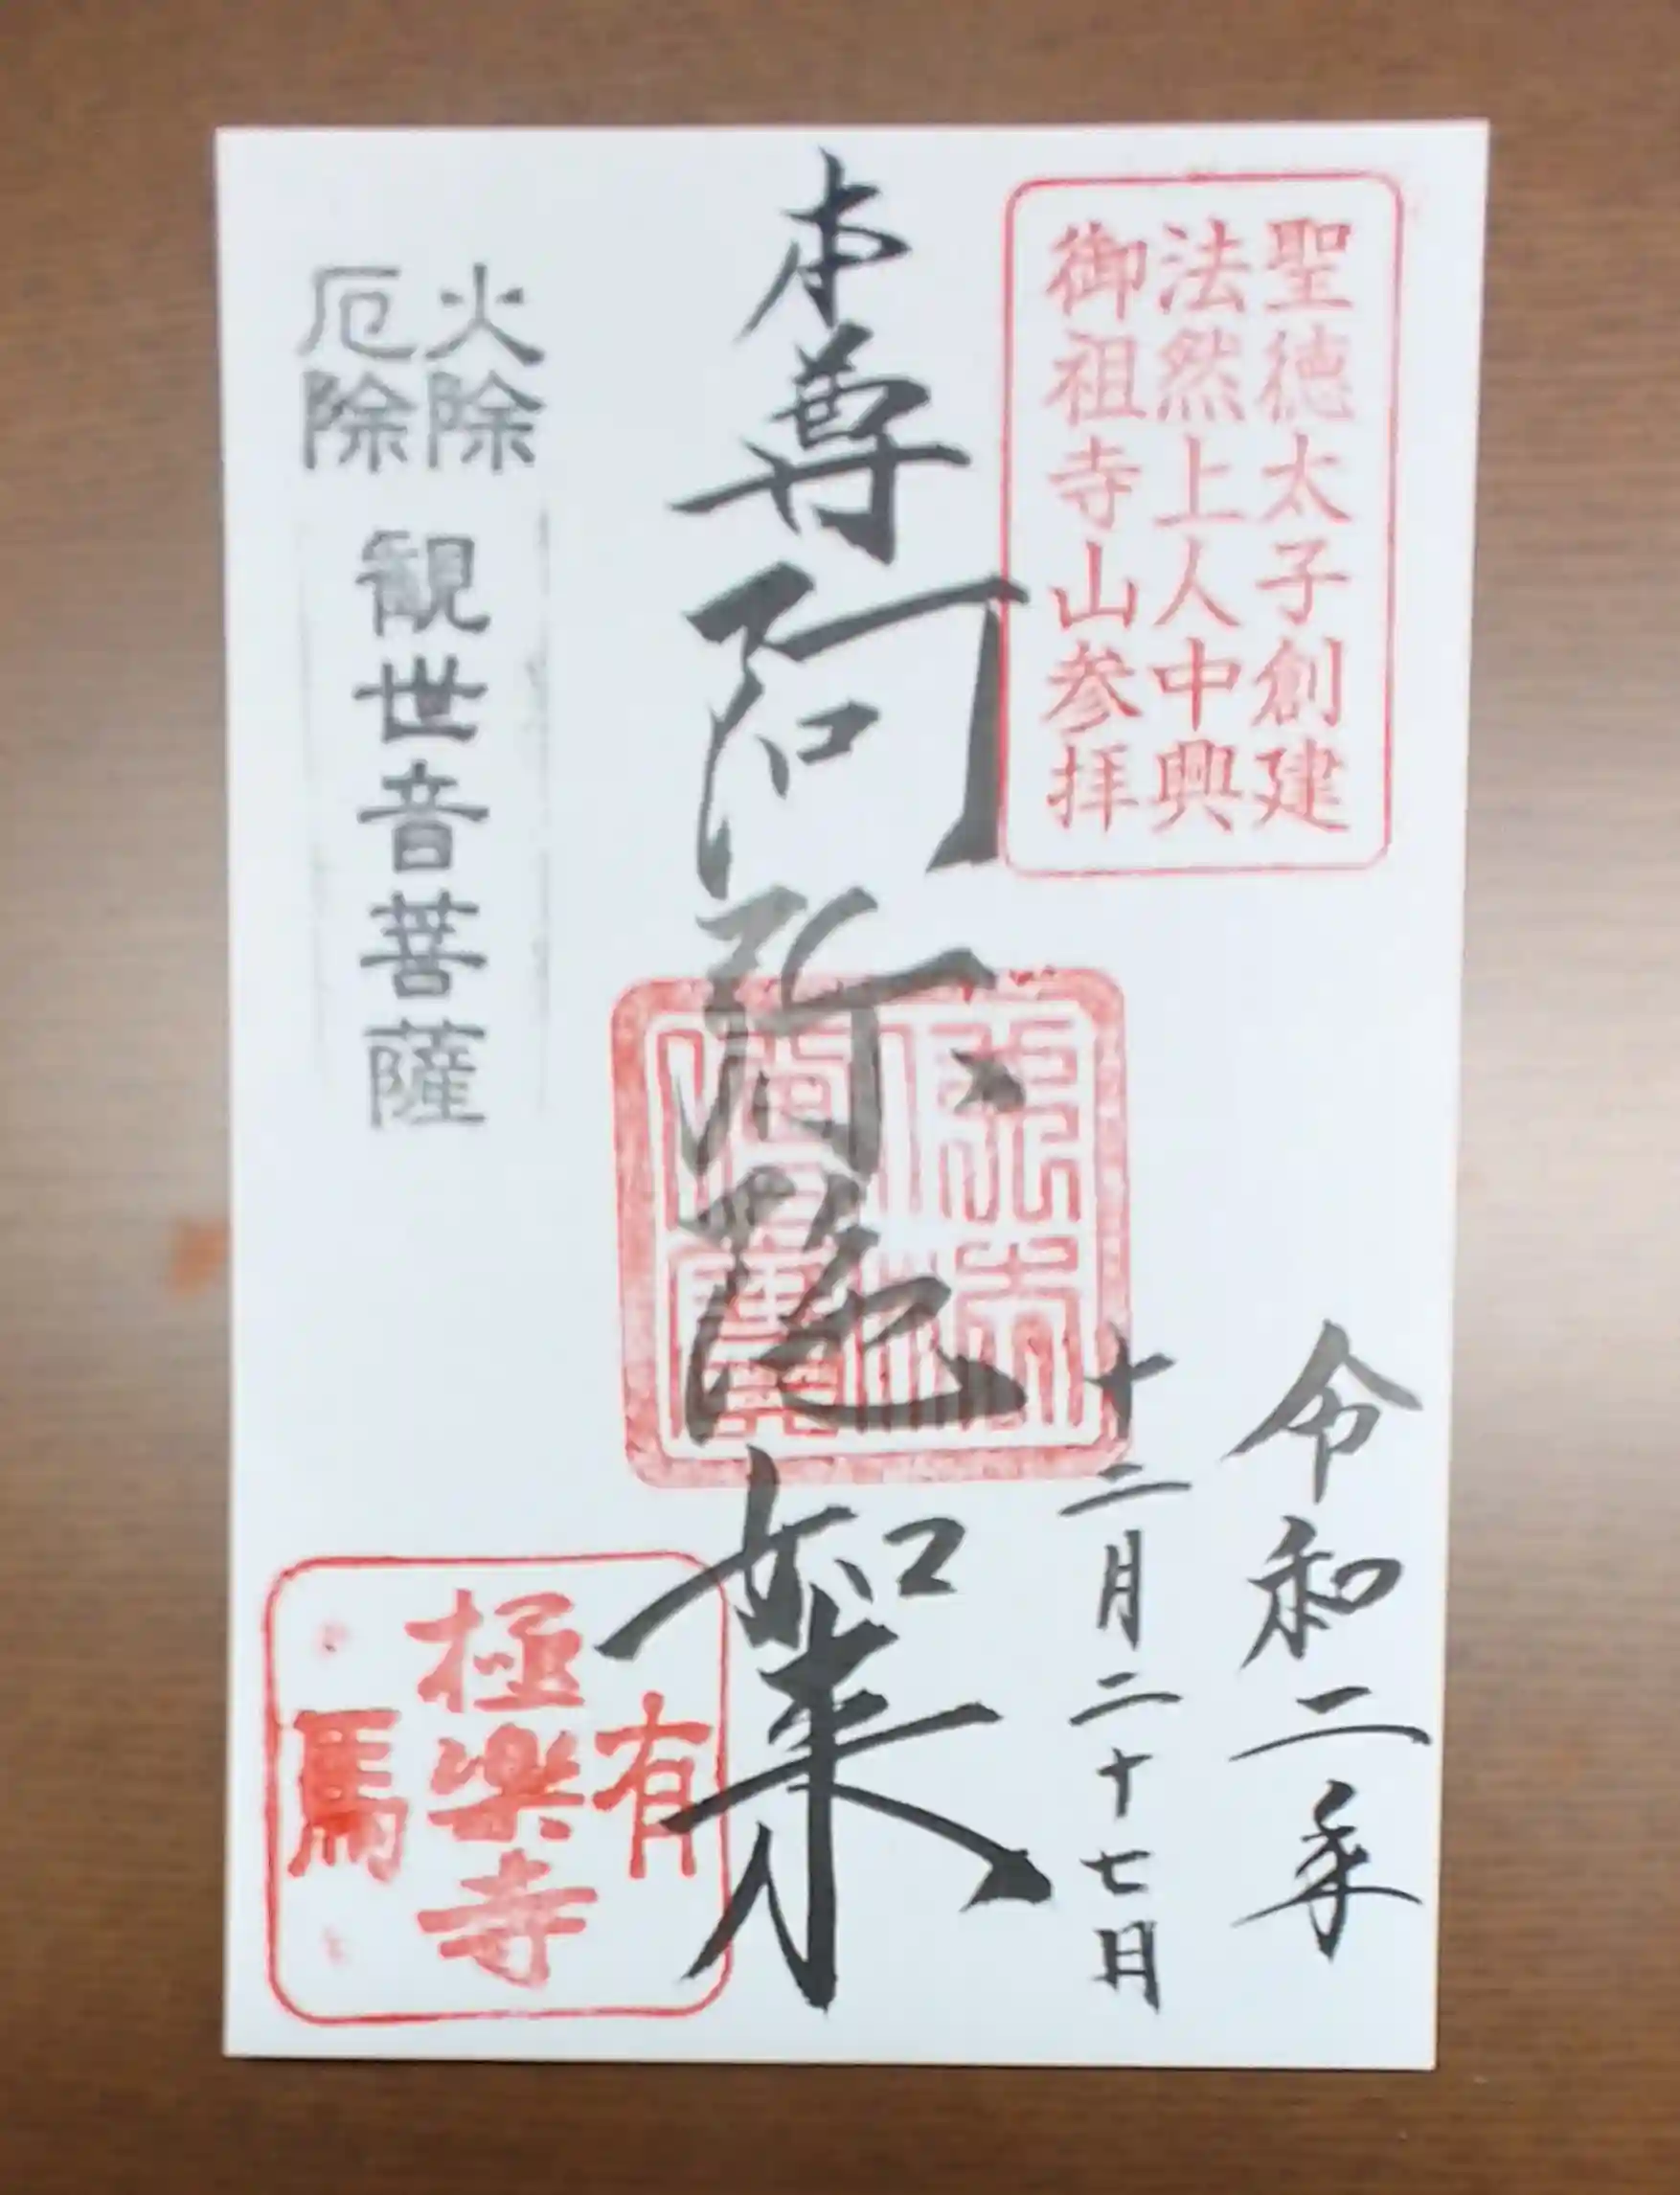 聖徳太子創建
法然上人中興
御祖寺山参拝
令和二年
十二月二十七日
本尊阿弥陀如来
火除
厄除
観世音菩薩
有馬
極楽寺